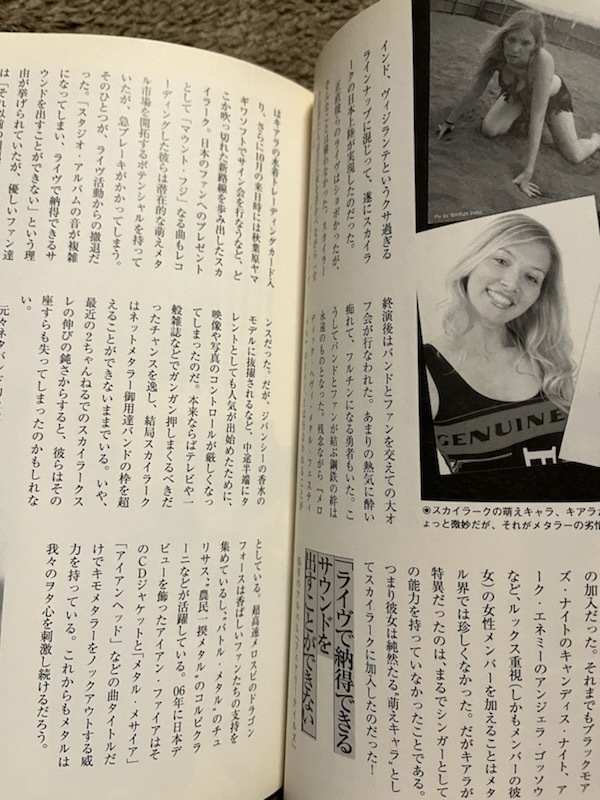 Pic by Norifumi Hida
GENUINE
◉スカイラークの萌えキャラ、キアラお
ょっと微妙だが、それがメタラーの劣情
インド、ヴィジランテというクサ過ぎる
ラインナップに混じって、遂にスカイラ
ークの日本上陸が実現したのだった。
正直彼らのライヴはショボかったが、
そんなことは構わなかった。
終演後はバンドとファンを交えての大オ
フ会が行なわれた。あまりの熱気に酔い
痴れて、フルチンになる勇者もいた。こ
うしてバンドとファンが結ぶ鋼鉄の絆は
永遠のものとなった。残念ながら「メロ
ディック・ヘヴィ・メタル・フェスティ
の加入だ。それまでもブラックモア
ズ・ナイトのキャンディス・ナイト、ア
ーク・エネミーのアンジェラ・ゴッソウ
など、ルックス重視(しかもメンバーの彼
女)の女性メンバーを加えることはメタ
ル界では珍しくなかった。だがキアラが
特異だったのは、まるでシンガーとして
の能力を持っていなかったことである。
つまり彼女は純然たる“萌えキャラ”とし
てスカイラークに加入したのだった!
「ライヴで納得できる
サウンドを
出すことができない」
はキアラの水着トレーディングカード入
り、さらに10月の来日時には秋葉原ヤマ
ギワソフトでサイン会を行なうなど、ど
こか吹っ切れた新路線を歩み出したスカ
イラーク。日本のファンへのプレゼント
として「マウント・フジ」なる曲もレコ
ーディングした彼らは潜在的な萌えメタ
ル市場を開拓するポテンシャルを持って
いたが、急ブレーキがかかってしまう。
そのひとつが、ライヴ活動からの撤退だ
った。「スタジオ・アルバムの音が複雑
になってしまい、ライヴで納得できるサ
ウンドを出すことができない」という理
由が挙げられていたが、優しいファン達
は「それ以前の問題」
ンスだった。だが、ジバンシーの香水の
モデルに抜擢されるなど、中途半端にタ
レントとしても人気が出始めたために、
映像や写真のコントロールが厳しくなっ
てしまったのだ。本来ならばテレビや一
般雑誌などでガンガン押しまくるべきだ
ったチャンスを逸し、結局スカイラーク
はネットメタラー御用達バンドの枠を超
えることができないままでいる。いや、
最近の2ちゃんねるでのスカイラークス
レの伸びの鈍さからすると、彼らはその
座すらも失ってしまったのかもしれな
い。
元々ネタバンド
としている。超高速メロスピのドラゴン
フォースは香ばしいファンたちの支持を
集めているし、“バトル・メタル”のチュ
リサス、“農民一揆メタル”のコルピクラ
ーニなどが活躍している。06年に日本デ
ビューを飾ったアイアン・ファイアはそ
のCDジャケットと「メタル・メサイア」
「アイアンヘッド」などの曲タイトルだ
けでキモメタラーをノックアウトする威
力を持っている。これからもメタルは
我々のヲタ心を刺激し続けるだろう。